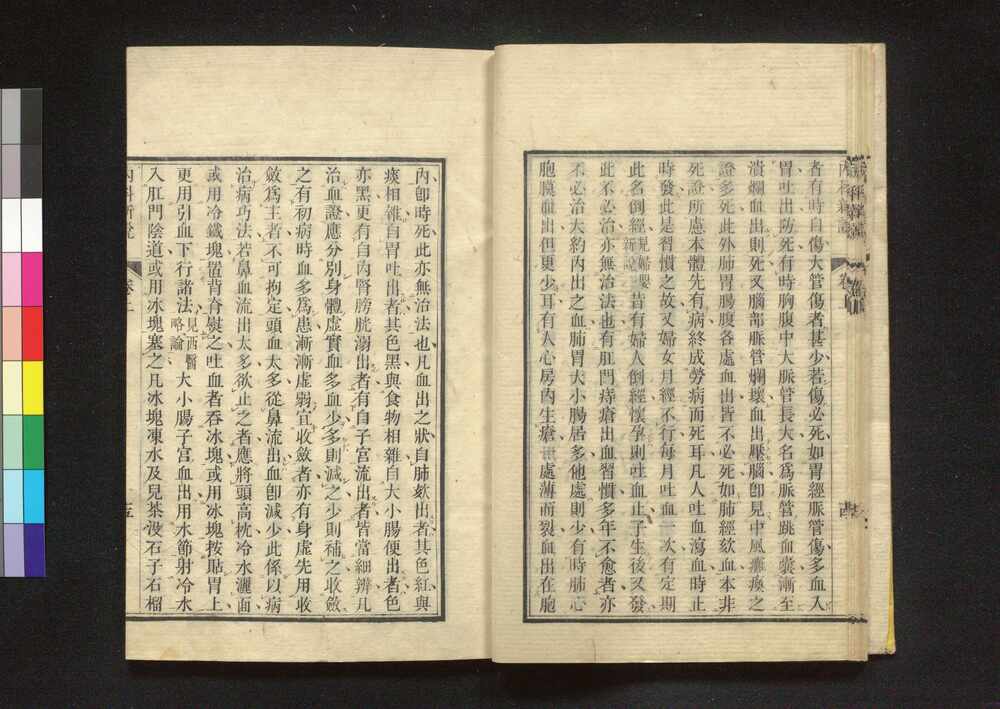 者有時自傷大管傷者甚少若傷必死如胃經脈管傷多血入
胃吐出防死有時胸腹中大脈管長大名爲脈管跳血囊漸至
潰爛血出則死又腦部脈管爛壞血出壓腦卽見中風癱瘓之
證多死此外肺胃腸腹各處血出皆不必死如肺經欬血本非
死證所慮本體先有病終成勞病而死耳凡人吐血瀉血時止
時發此是習慣之故又婦女月經不行每月吐血一次有定期
此名倒經見婦嬰新說昔有婦人倒經懷孕則吐血止子生後又發
此不必治亦無治法也有肛門痔瘡出血習慣多年不愈者亦
不必治大約內出之血肺胃大小腸居多他處則少有時肺心
胞膜血出但更少耳有人心房內生瘡一處薄而裂血出在胞
內卽時死此亦無治法也凡血出之狀自肺欬出者其色紅與
痰相雜自胃吐出者其色黑與食物相雜自大小腸便出者色
亦黑更有自內腎膀胱溺出者有自子宮流出者皆當細辨凡
治血證應分別身體虛實血多血少多則減之少則補之收斂
之有初病時血多爲患漸漸虛弱宜收斂者亦有身虛先用收
斂爲主者不可拘定頭血太多從鼻流出血卽減少此係以病
治病巧法若鼻血流出太多欲止之者應將頭高枕冷水灑面
或用冷鐵塊置背脊熨之吐血者吞冰塊或用冰塊按貼胃上
更用引血下行諸法見西醫略論大小腸子宮血出用水節射冷水
入肛門陰道或用冰塊塞之凡冰塊凍水及兒茶沒石子石榴
內科新說
卷上